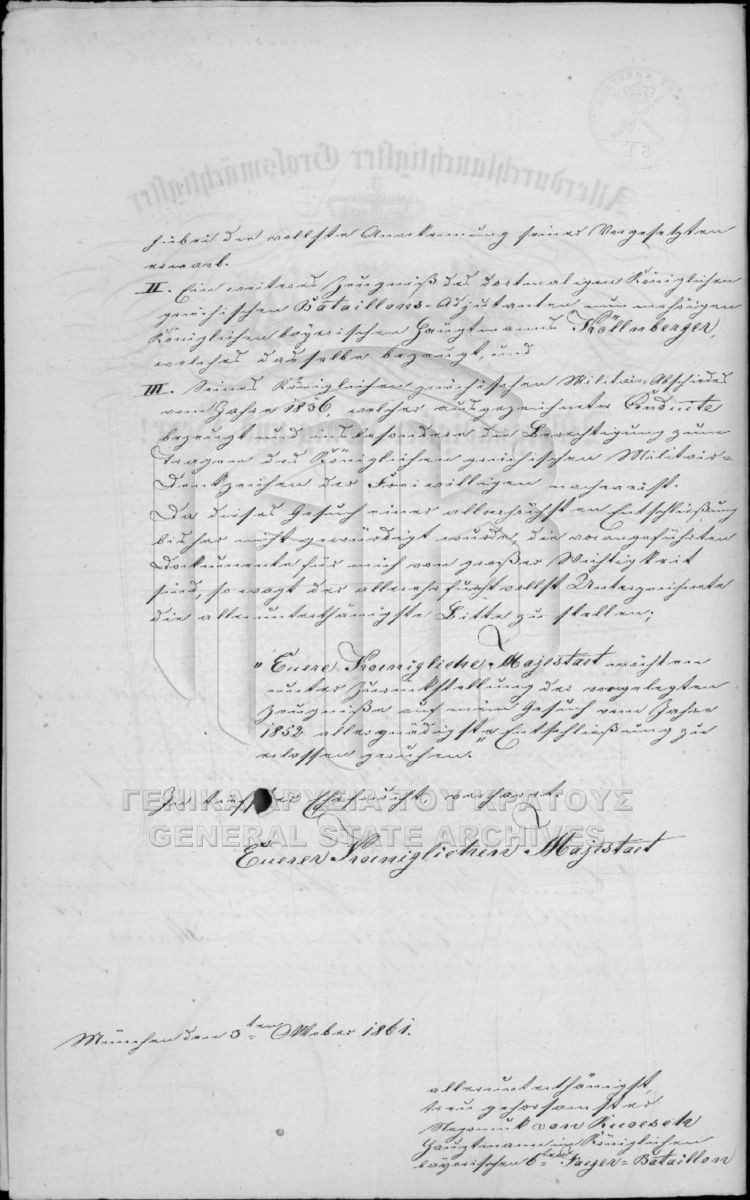 hiebei die vollste Anerkennung seiner Vorgesetzten
erwarb.
II. Ein weiteres Zeugniß des dortmaligen Königlichen
griechischen Bataillons-Adjutanten nunmehrigen
Königlichen bayerischen Hauptmanns Köllnberger,
welches dasselbe bezeugt, und
III. Seines Königlichen griechischen Militair-Abschiedes
vom Jahre 1836, welcher ausgezeichnete Conduite
bezeugt und insbesondere die Berechtigung zum
Tragen des Königlichen griechischen Militair-
Denkzeichen der Freiwilligen nachweist.
Da dieses Gesuch einer allerhöchsten Entschließung
bisher nicht gewürdigt wurde, die vorangeführten
Dokumente für mich von großer Wichtigkeit
sind, so wagt der allerehrfurchtvollst Unterzeichnete
die allerunterthänigste Bitte zu stellen;
"Euere Koenigliche Majestaet möchten
unter Zurückstellung der vorgelegten
Zeugniße auf mein Gesuch vom Jahre
1852 allergnädigste Entschließung zu
erlassen geruhen."
In tiefster Ehrfurcht verharrt
Euerer Koeniglichen Majestaet
München den 5ten Oktober 1861.
allerunterthänigst
treu gehorsamster
von
Hauptmann im Königlichen
bayerischen 6ten Jaeger-Bataillon
ΓΕΝΙΚΑ ΑΡΧΕΙΑ ΤΟΥ ΚΡΑΤΟΥΣ
GENERAL STATE ARCHIVES